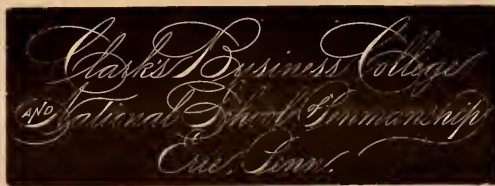 Clark's Business College
AND National School of Penmanship
Erie, Penn.